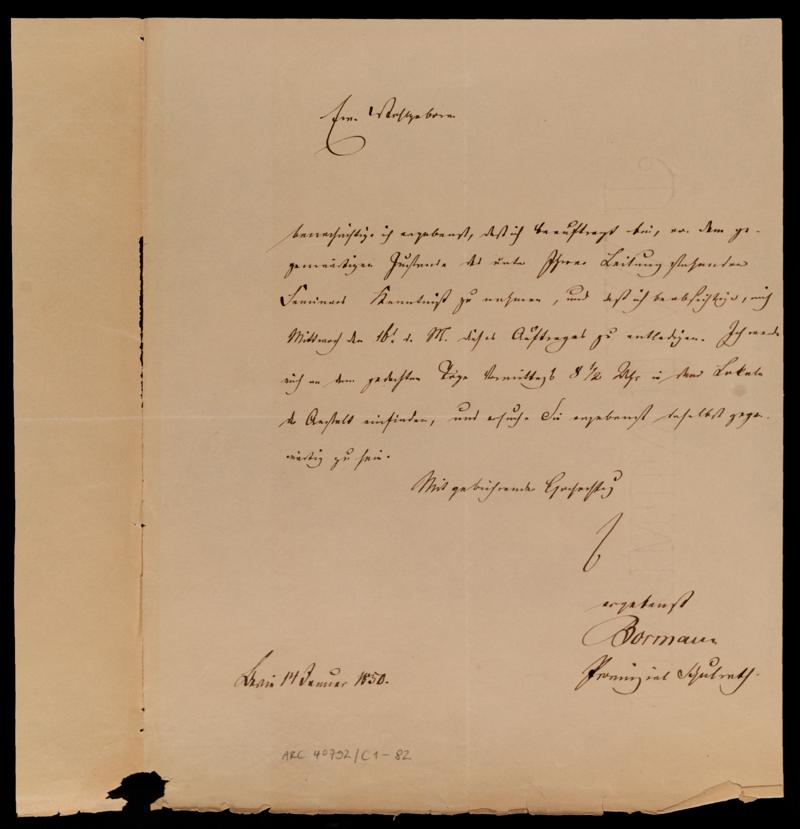 Ew. Wohlgeboren
benachrichtige ich ergebenst, daß ich beauftragt bin, von dem ge-
genwärtigen Zustande des unter Ihrer Leitung stehenden
Seminars Kenntniß zu nehmen, und daß ich beabsichtige, mich
Mittwoch den 16t. d. M. dieses Auftrages zu entledigen. Ich werde
mich an dem gedachten Tage Vormittags 8 1/2 Uhr in dem Lokale
der Anstalt einfinden, und ersuche Sie ergebenst daselbst gegen-
wärtig zu sein.
Mit gebührender Hochachtung
ergebenst
Bormann
Provinzial Schulrath.
Berlin 14 Januar 1850.
ARC 40792/C1-82